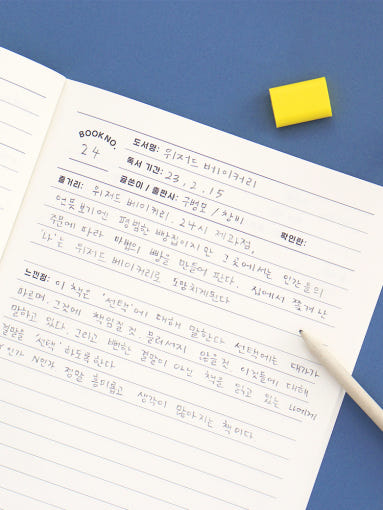 BOOK NO. 24
도서명: 위저드 베이커리
독서 기간: 23. 2. 15
글쓴이 / 출판사: 구병모 / 창비
확인란:
줄거리: 위저드 베이커리. 24시 제과점.
언뜻 보기엔 평범한 빵집이지만 그곳에서는 인간들의
주문에 따라 마법의 빵을 만들어 판다. 집에서 쫓겨난
'나'는 위저드 베이커리로 도망치게된다
느낀점: 이 책은 '선택'에 대해 말한다. 선택에는 대가가
따르며, 그것에 책임질 것 물러서지 않을 것 이것들에 대해
말하고 있다. 그리고 뻔한 결말이 아닌 책을 읽고 있는 나에게
결말을 '선택' 하도록 한다
Y인가 N인가 정말 흥미롭고 생각이 많아지는 책이다